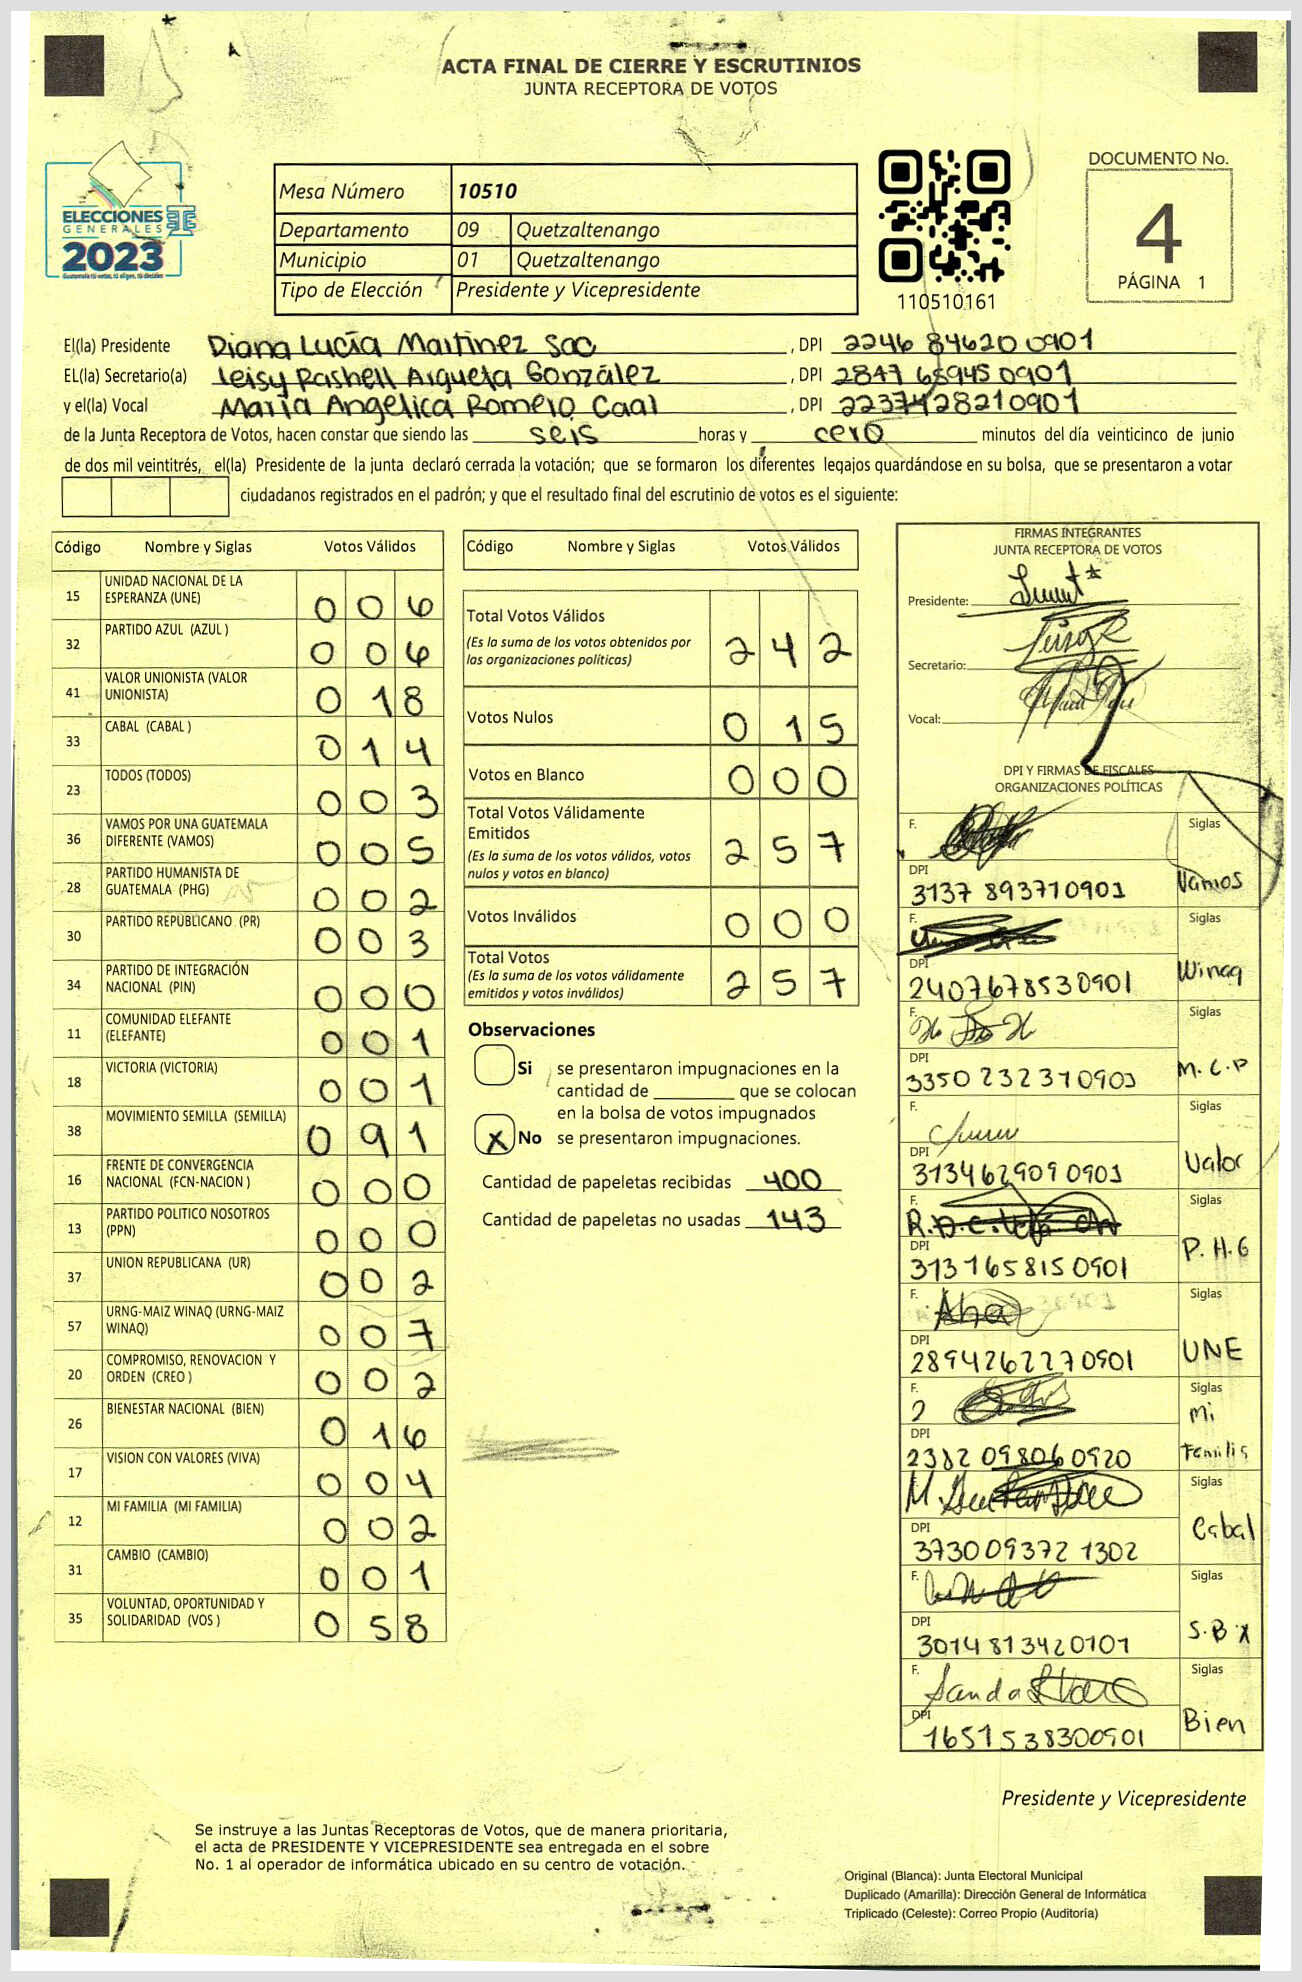 ACTA FINAL DE CIERRE Y ESCRUTINIOS
JUNTA RECEPTORA DE VOTOS
ELECCIONES
GENERALES
2023
Guatemala tú votas, tú eliges, tú decides
Mesa Número 10510
Departamento 09 Quetzaltenango
Municipio 01 Quetzaltenango
Tipo de Elección Presidente y Vicepresidente
110510161
DOCUMENTO No.
4
PÁGINA 1
El(la) Presidente Diana Lucía Martínez Sac, DPI 2246 84620 0901
EL(la) Secretario(a) Leisy Rashell Argueta González, DPI 2847 65945 0901
y el(la) Vocal María Angélica Romero Caal, DPI 2237428210901
de la Junta Receptora de Votos, hacen constar que siendo las seis horas y cero minutos del día veinticinco de junio
de dos mil veintitrés, el(la) Presidente de la junta declaró cerrada la votación; que se formaron los diferentes legajos guardándose en su bolsa, que se presentaron a votar
ciudadanos registrados en el padrón; y que el resultado final del escrutinio de votos es el siguiente:
Código Nombre y Siglas Votos Válidos
15 UNIDAD NACIONAL DE LA ESPERANZA (UNE) 006
32 PARTIDO AZUL (AZUL ) 006
41 VALOR UNIONISTA (VALOR UNIONISTA) 018
33 CABAL (CABAL ) 014
23 TODOS (TODOS) 003
36 VAMOS POR UNA GUATEMALA DIFERENTE (VAMOS) 005
28 PARTIDO HUMANISTA DE GUATEMALA (PHG) 002
30 PARTIDO REPUBLICANO (PR) 003
34 PARTIDO DE INTEGRACIÓN NACIONAL (PIN) 000
11 COMUNIDAD ELEFANTE (ELEFANTE) 001
18 VICTORIA (VICTORIA) 001
38 MOVIMIENTO SEMILLA (SEMILLA) 091
16 FRENTE DE CONVERGENCIA NACIONAL (FCN-NACION ) 000
13 PARTIDO POLITICO NOSOTROS (PPN) 000
37 UNION REPUBLICANA (UR) 002
57 URNG-MAIZ WINAQ (URNG-MAIZ WINAQ) 007
20 COMPROMISO, RENOVACION Y ORDEN (CREO ) 002
26 BIENESTAR NACIONAL (BIEN) 016
17 VISION CON VALORES (VIVA) 004
12 MI FAMILIA (MI FAMILIA) 002
31 CAMBIO (CAMBIO) 001
35 VOLUNTAD, OPORTUNIDAD Y SOLIDARIDAD (VOS ) 058
Código Nombre y Siglas Votos Válidos
Total Votos Válidos 242
(Es la suma de los votos obtenidos por
las organizaciones políticas)
Votos Nulos 015
Votos en Blanco 000
Total Votos Válidamente
Emitidos 257
(Es la suma de los votos válidos, votos
nulos y votos en blanco)
Votos Inválidos 000
Total Votos 257
(Es la suma de los votos válidamente
emitidos y votos inválidos)
Observaciones
Si se presentaron impugnaciones en la
cantidad de ________ que se colocan
en la bolsa de votos impugnados
X No se presentaron impugnaciones.
Cantidad de papeletas recibidas 400
Cantidad de papeletas no usadas 143
FIRMAS INTEGRANTES
JUNTA RECEPTORA DE VOTOS
Presidente:
Secretario:
Vocal:
DPI Y FIRMAS DE FISCALES
ORGANIZACIONES POLÍTICAS
F. Siglas
DPI 3137 893710901 Vamos
F. Siglas
DPI 2407678530901 Winaq
F. Siglas
DPI 3350 232370901 M.C.P
F. Siglas
DPI 3134629090901 Valor
F. Siglas
DPI 3131658150901 P.H.G
F. Siglas
DPI 2894262270901 UNE
F. Siglas
DPI 2382 098060920 Mi Familia
F. Siglas
DPI 373009372 1302 Cabal
F. Siglas
DPI 3014813420101 S.B.X
F. Siglas
DPI 1651538300901 Bien
Presidente y Vicepresidente
Se instruye a las Juntas Receptoras de Votos, que de manera prioritaria,
el acta de PRESIDENTE Y VICEPRESIDENTE sea entregada en el sobre
No. 1 al operador de informática ubicado en su centro de votación.
Original (Blanca): Junta Electoral Municipal
Duplicado (Amarilla): Dirección General de Informática
Triplicado (Celeste): Correo Propio (Auditoría)